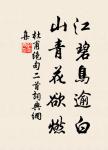 江碧鳥逾白
山青花欲燃
杜甫絕句二首詞典網
集